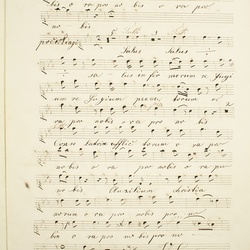 bis o ra pro no bis o ra pro
no bis
Salus Salus
sa lus in fir morum re fugi
um re fugium pecca torum o
ra pro nobis o ra pro no bis
Conso latrix afflic torum o ra pro
nobis o ra pro nobis o ra pro
nobis Auxilium christia
norum o ra pro nobis pro no
bis o ra pro no bis pro no